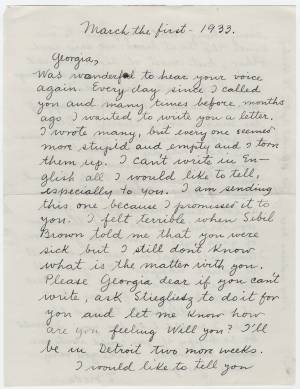 March the first - 1933.
Georgia,
Was wonderful to hear your voice
again. Every day since I called
you and many times before months
ago I wanted to write you a letter.
I wrote many, but every one seemed
more stupid and empty and I torn
them up. I can't write in En-
glish all I would like to tell,
especially to you. I am sending
this one because I promised it to
you. I felt terrible when Sibil
Brown told me that you were
sick but I still don't know
what is the matter with you.
Please Georgia dear if you can't
write, ask Stieglitz to do it for
you and let me know how
are you feeling will you? I'll
be in Detroit two more weeks.
I would like to tell you